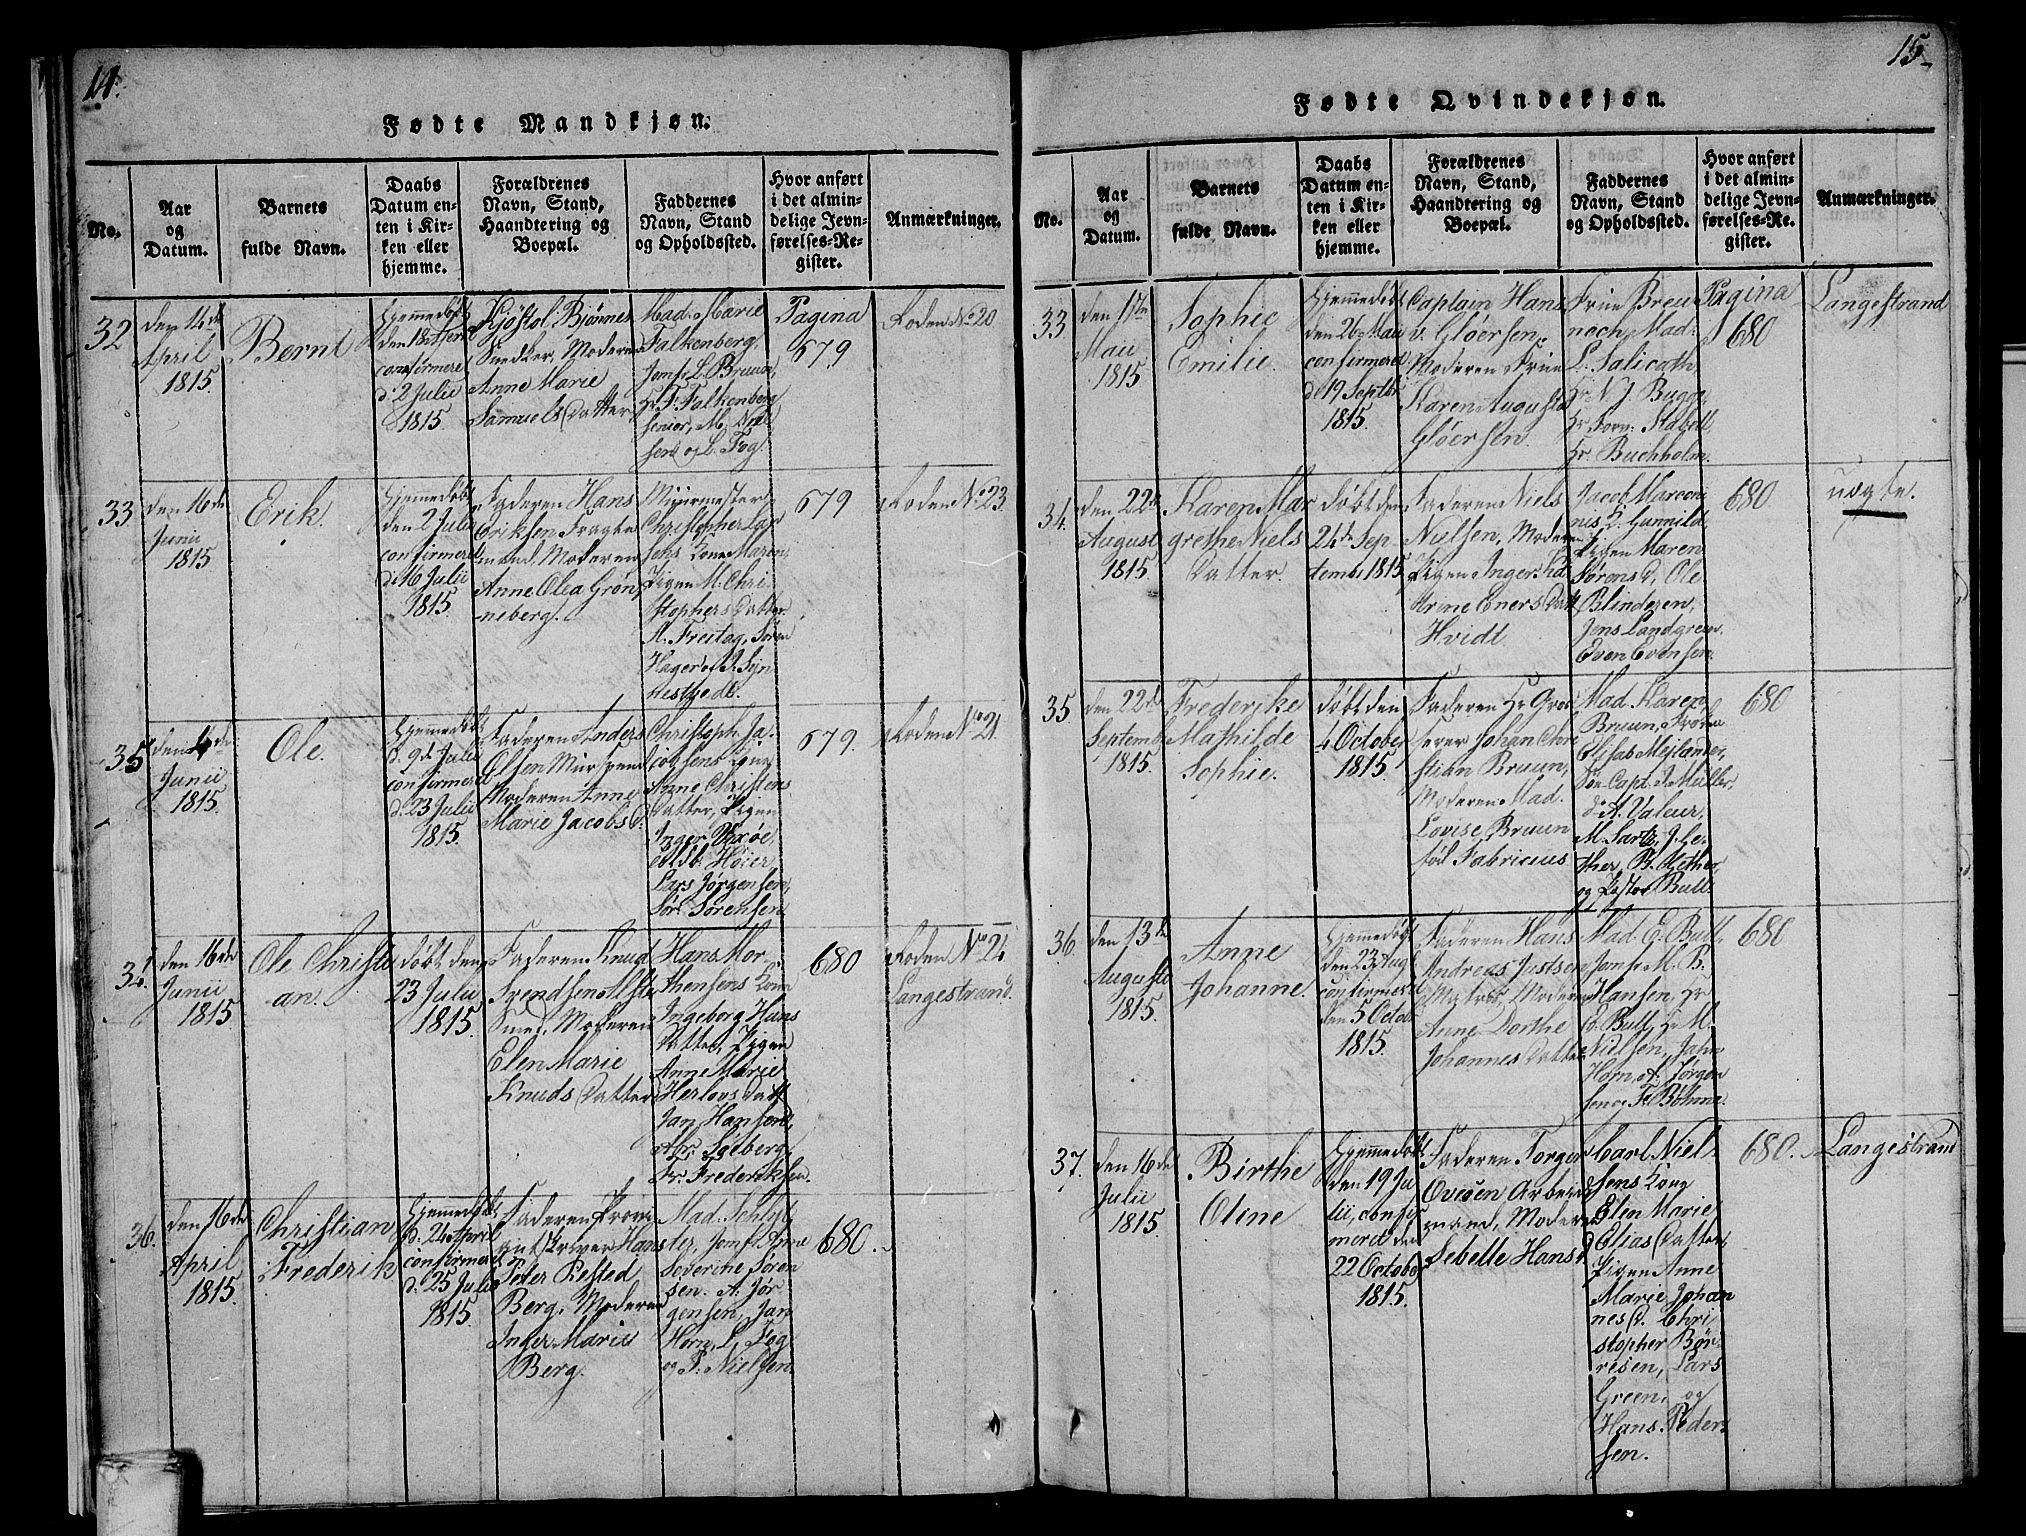 14.
Fødte Mandkjøn.
No.
Aar
og
Datum.
Barnets
fulde Navn.
Daabs
Datum en-
ten i Kir-
ken eller
hjemme.
Forældrenes
Navn, Stand,
Haandtering og
Boepæl.
Faddernes
Navn, Stand
og Opholdssted.
Hvor anført
i det almin-
delige Jevn-
førelses-Re-
gister.
Anmærkninger.
32
den 14de
April
1815.
Bernt
Hjemmedøbt
den 18 April
confirmeret
d. 2 Julii
1815
Kjøstol Bjønnes
Snedker, Moderen
Anne Marie
Samuels Datter
Mad. Marie
Falkenberg,
Jomf. L. Bruun,
Hr. F. Falkenberg
senior, M. Niel-
sen og L. Fog.
Pagina
679
Roden No. 20
33
den 16de
Junii
1815
Erik.
Hjemmedøbt
den 2 Julii
confirmeret
d. 16 Julii
1815.
Faderen Hans
Eriksen Fragte-
mand, Moderen
Anne Olea Grøn-
neberg.
Muurmester
Christopher Lar-
sens Kone Maren,
Pigen M. Chri-
stophers Datter
A. Freitag, Søren
Hager,
679
Roden No. 23.
35
den 4de
Junii
1815.
Ole.
Hjemmedøbt
d. 9de Julii
confirmeret
d. 23 Julii
1815.
Faderen Anders
Olsen Mursvend
Moderen Anne
Marie Jacobs d.
Christoph. Ja-
cobsens Kone
Anne Christens
Datter, Pigen
Inger
Høier
Lars Jørgensen,
Sør. Sørensen
679.
Roden No. 21.
34.
den 16de
Junii
1815
Ole Christi-
an.
døbt den
23 Julii
1815.
Faderen Knud
Svendsen
Smed, Moderen
Elen Marie
Knuds Datter
Hans Mor-
thensens Kone
Ingeborg Hans
Datter, Pigen
Anne Marie
Herlovs Datt.
Jan Hansen,
Abr. Soeberg,
Fr. Frederiksen.
680
Roden No. 24
Langestrand.
36.
den 16de
April
1815.
Christian
Frederik
Hjemmedøbt
d. 24 April
confirmeret
d. 25 Julii
1815.
Faderen Provi-
antskriver Hans
Peter Rested
Berg, Moderen
Inger Marie
Berg.
Mad. Schlyt-
ter, Jomf. Anne
Severine Søren-
sen. A. Jør-
gensen, Jan
Horn, L. Fog
og P. Nielsen.
680.
15.
Fødte Qvindekjøn.
No.
Aar
og
Datum.
Barnets
fulde Navn.
Daabs
Datum en-
ten i Kir-
ken eller
hjemme.
Forældrenes
Navn, Stand,
Haandtering og
Boepæl.
Faddernes
Navn, Stand
og Opholdssted.
Hvor anført
i det almin-
delige Jevn-
førelses-Re-
gister.
Anmærkninger.
33
den 17te
Mai
1815
Sophie
Emilie.
Hjemmedøbt
den 26 Mai
confirmeret
d. 19 Septbr
1815.
Captain Hans
v. Gløersen,
Moderen Frue
Karen Augusta
Gløersen.
Frue Breu-
noch, Mad.
L. Salicath,
Hr. N. J. Bugge,
Hr. Forv. Stabell,
Hr. Buchholm.
Pagina
680
Langestrand
34.
den 22de
August
1815.
Karen Mar-
grethe Niels
Datter.
døbt den
24de Sep-
tembr 1815.
Faderen Niels
Nielsen, Moderen
Pigen Inger Ka-
thrine Eners Datt.
Hvidt
Jacob Marcon-
nis K. Gunnild,
Pigen Maren
Sørens d., Ole
Blindezen,
Jens Landgreen,
Even Evensen.
680
uægte.
35
den 22de
Septemb.
1815.
Frederike
Mathilde
Sophie.
døbt den
4 October
1815.
Faderen Hr. Gros-
serer Johan Chri-
stian Bruun,
Moderen Mad.
Lovise Bruun
fød Fabricius
Mad. Karen
Bruun, Frøken
Elisab. Mejlænder,
Søe Capt. J. Müller,
do. A. Valeur,
M. Sartz, J. Le-
ther, P. Hether,
og Pastor Bull.
680
36.
den 13de
Augusti
1815.
Anne
Johanne.
Hjemmedøbt
den 23 Aug.
confirmeret
den 5 Octobr
1815.
Faderen Hans
Andreas Justsen
Matros, Moderen
Anne Dorthe
Johannes Datter
Mad. E. Bull,
Jomf. M. B.
Hansen, Hr.
E. Bull, Hr. M.
Nielsen, Jahn
Horn, A. Jørgen-
sen og Fr. Bohme.
680
37.
den 16de
Julii
1815.
Birthe
Oline
Hjemmedøbt
den 19 Ju-
lii, confir-
mered den
22 October
1815.
Faderen Torger
Oveøen Arbeids-
mand, Moderen
Sebelle Hans d.
Carl Niel-
sens Kone
Elen Marie
Elias Datter,
Pigen Anne
Marie Johan-
nes D. Chri-
stopher Bør-
resen, Lars
Green, og
Hans Peder-
sen.
680.
Langestrand